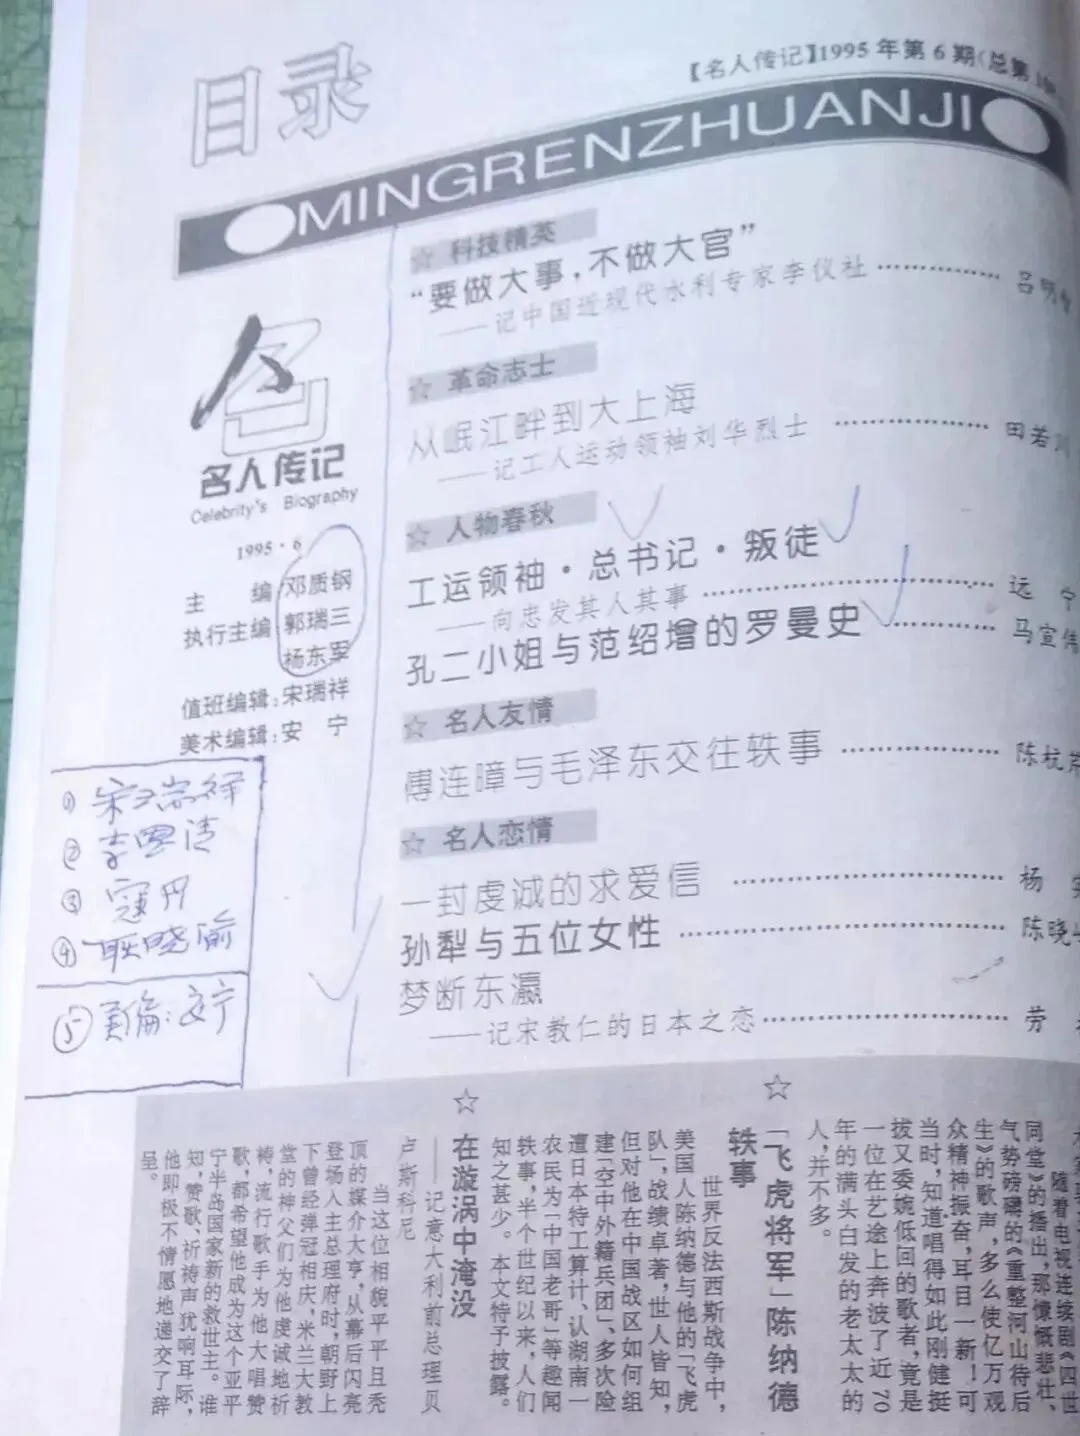 目录
【名人传记】1995年第6期(总第
MINGRENZHUANJI
名人传记
Celebrity's Biography
1995·6
主 编 邓质钢
执行主编 郭瑞三
杨东军
值班编辑:宋瑞祥
美术编辑:安 宁
① 宋瑞祥
② 李国清
③ 寇丹
④ 耿晓谕
⑤ 美编:安宁
☆ 科技精英
“要做大事,不做大官”
——记中国近现代水利专家李仪社 吕明
☆ 革命志士
从岷江畔到大上海
——记工人运动领袖刘华烈士 田若
☆ 人物春秋
工运领袖·总书记·叛徒
——向忠发其人其事 远 宁
孔二小姐与范绍增的罗曼史 马宣伟
☆ 名人友情
傅连暲与毛泽东交往轶事 陈杭
☆ 名人恋情
一封虔诚的求爱信 杨
孙犁与五位女性 陈晓
梦断东瀛
——记宋教仁的日本之恋 劳
随着电视连续剧《四世
同堂》的播出,那慷慨悲壮、
气势磅礴的《重整河山待后
生》的歌声,多么使亿万观
众精神振奋,耳目一新!可
当时,知道唱得如此刚健挺
拔又委婉低回的歌者,竟是
一位在艺途上奔波了近70
年的满头白发的老太太的
人,并不多。
☆「飞虎将军」陈纳德
轶事
世界反法西斯战争中,
美国人陈纳德与他的「飞虎
队」,战绩卓著,世人皆知,
但对他在中国战区如何组
建「空中外籍兵团」、多次险
遭日本特工算计、认湖南一
农民为「中国老哥」等趣闻
轶事,半个世纪以来,人们
知之甚少。本文特予披露。
☆ 在漩涡中淹没
——记意大利前总理贝
卢斯科尼
当这位相貌平平且秃
顶的媒介大亨,从幕后闪亮
登场入主总理府时,朝野上
下曾经弹冠相庆,米兰大教
堂的神父们为他虔诚地祈
祷,流行歌手为他大唱赞
歌,都希望他成为这个亚平
宁半岛国家新的救世主。谁
知,赞歌、祈祷声犹响耳际,
他即极不情愿地递交了辞
呈。